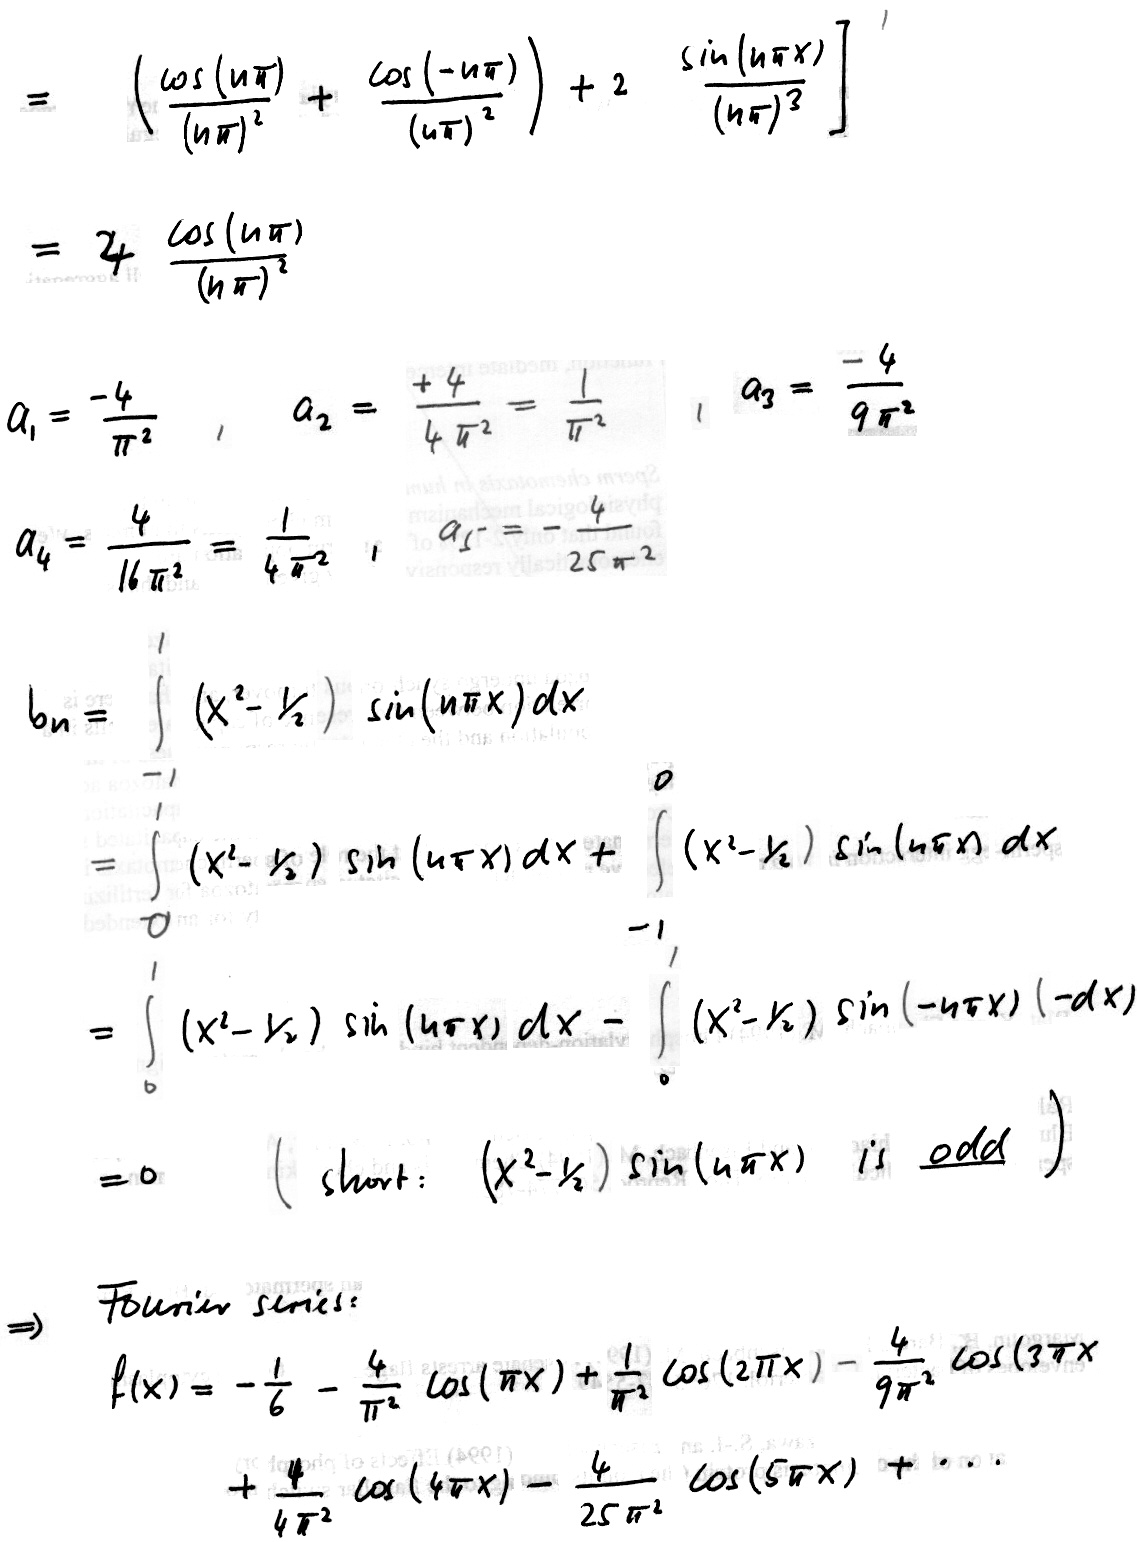 = (cos(nπ)/(nπ)² + cos(-nπ)/(nπ)²) + 2 sin(nπx)/(nπ)³]¹
= 4 cos(nπ)/(nπ)²
a₁ = -4/π² , a₂ = +4/4π² = 1/π² , a₃ = -4/9π²
a₄ = 4/16π² = 1/4π² , a₅ = - 4/25π²
bₙ = ∫₋₁¹ (x² - 1/2) sin(nπx) dx
= ∫₀¹ (x² - 1/2) sin(nπx) dx + ∫₋₁⁰ (x² - 1/2) sin(nπx) dx
= ∫₀¹ (x² - 1/2) sin(nπx) dx - ∫₀¹ (x² - 1/2) sin(-nπx) (-dx)
= 0 (short: (x² - 1/2) sin(nπx) is odd)
⇒ Fourier series:
f(x) = - 1/6 - 4/π² cos(πx) + 1/π² cos(2πx) - 4/9π² cos(3πx
+ 4/4π² cos(4πx) - 4/25π² cos(5πx) + ...